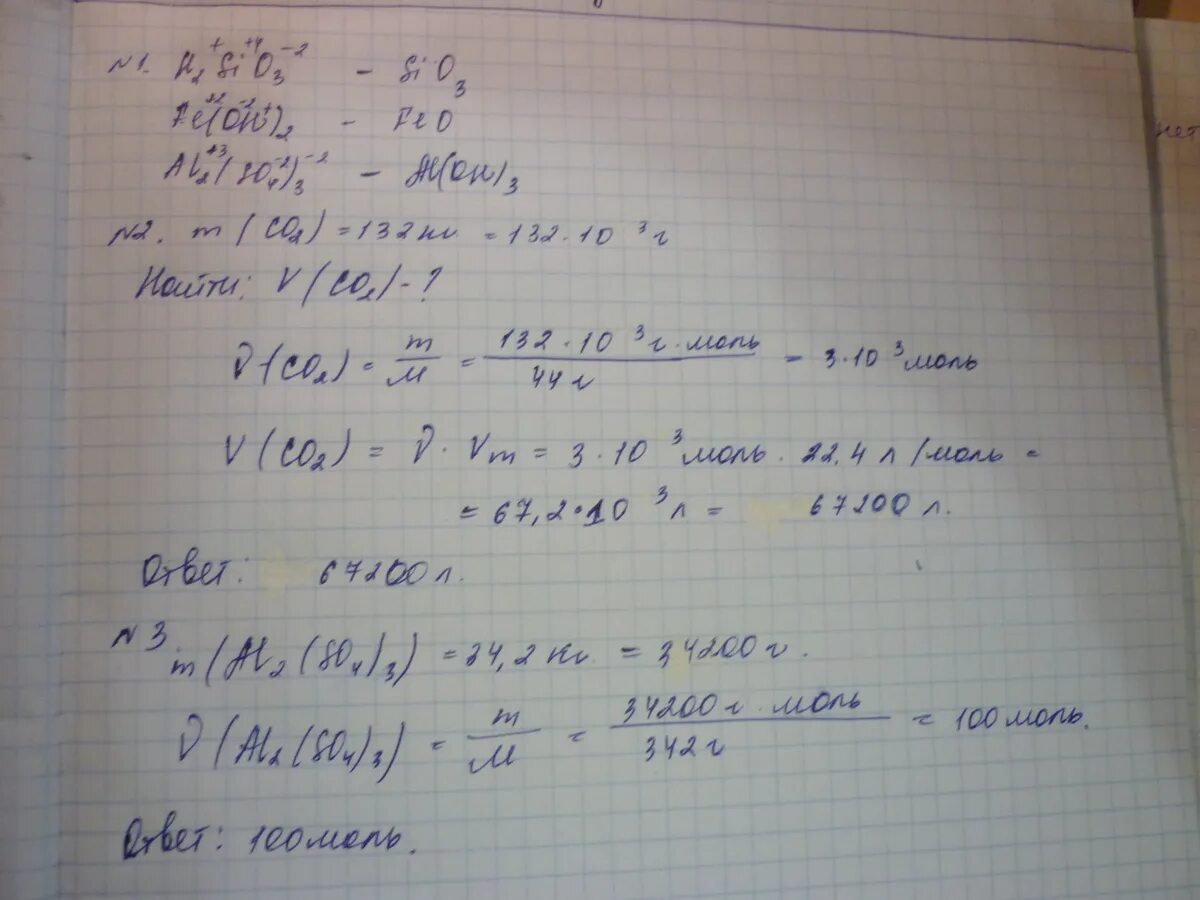 №1. H₂⁺Si⁺⁴O₃⁻² – SiO₃
Fe⁺²(O⁻²H⁺)₂ – FeO
Al₂⁺³(SO₄⁻²)₃⁻² – Al(OH)₃
№2. m(CO₂) = 132 кг = 132·10³ г
Найти: V(CO₂) - ?
ν(CO₂) = m/M = 132·10³ г·моль/44 г = 3·10³ моль
V(CO₂) = ν · Vm = 3·10³ моль · 22,4 л/моль =
= 67,2·10³ л = 67200 л.
Ответ: 67200 л.
№3
m(Al₂(SO₄)₃) = 34,2 кг = 34200 г.
ν(Al₂(SO₄)₃) = m/M = 34200 г·моль/342 г = 100 моль.
Ответ: 100 моль.
нет